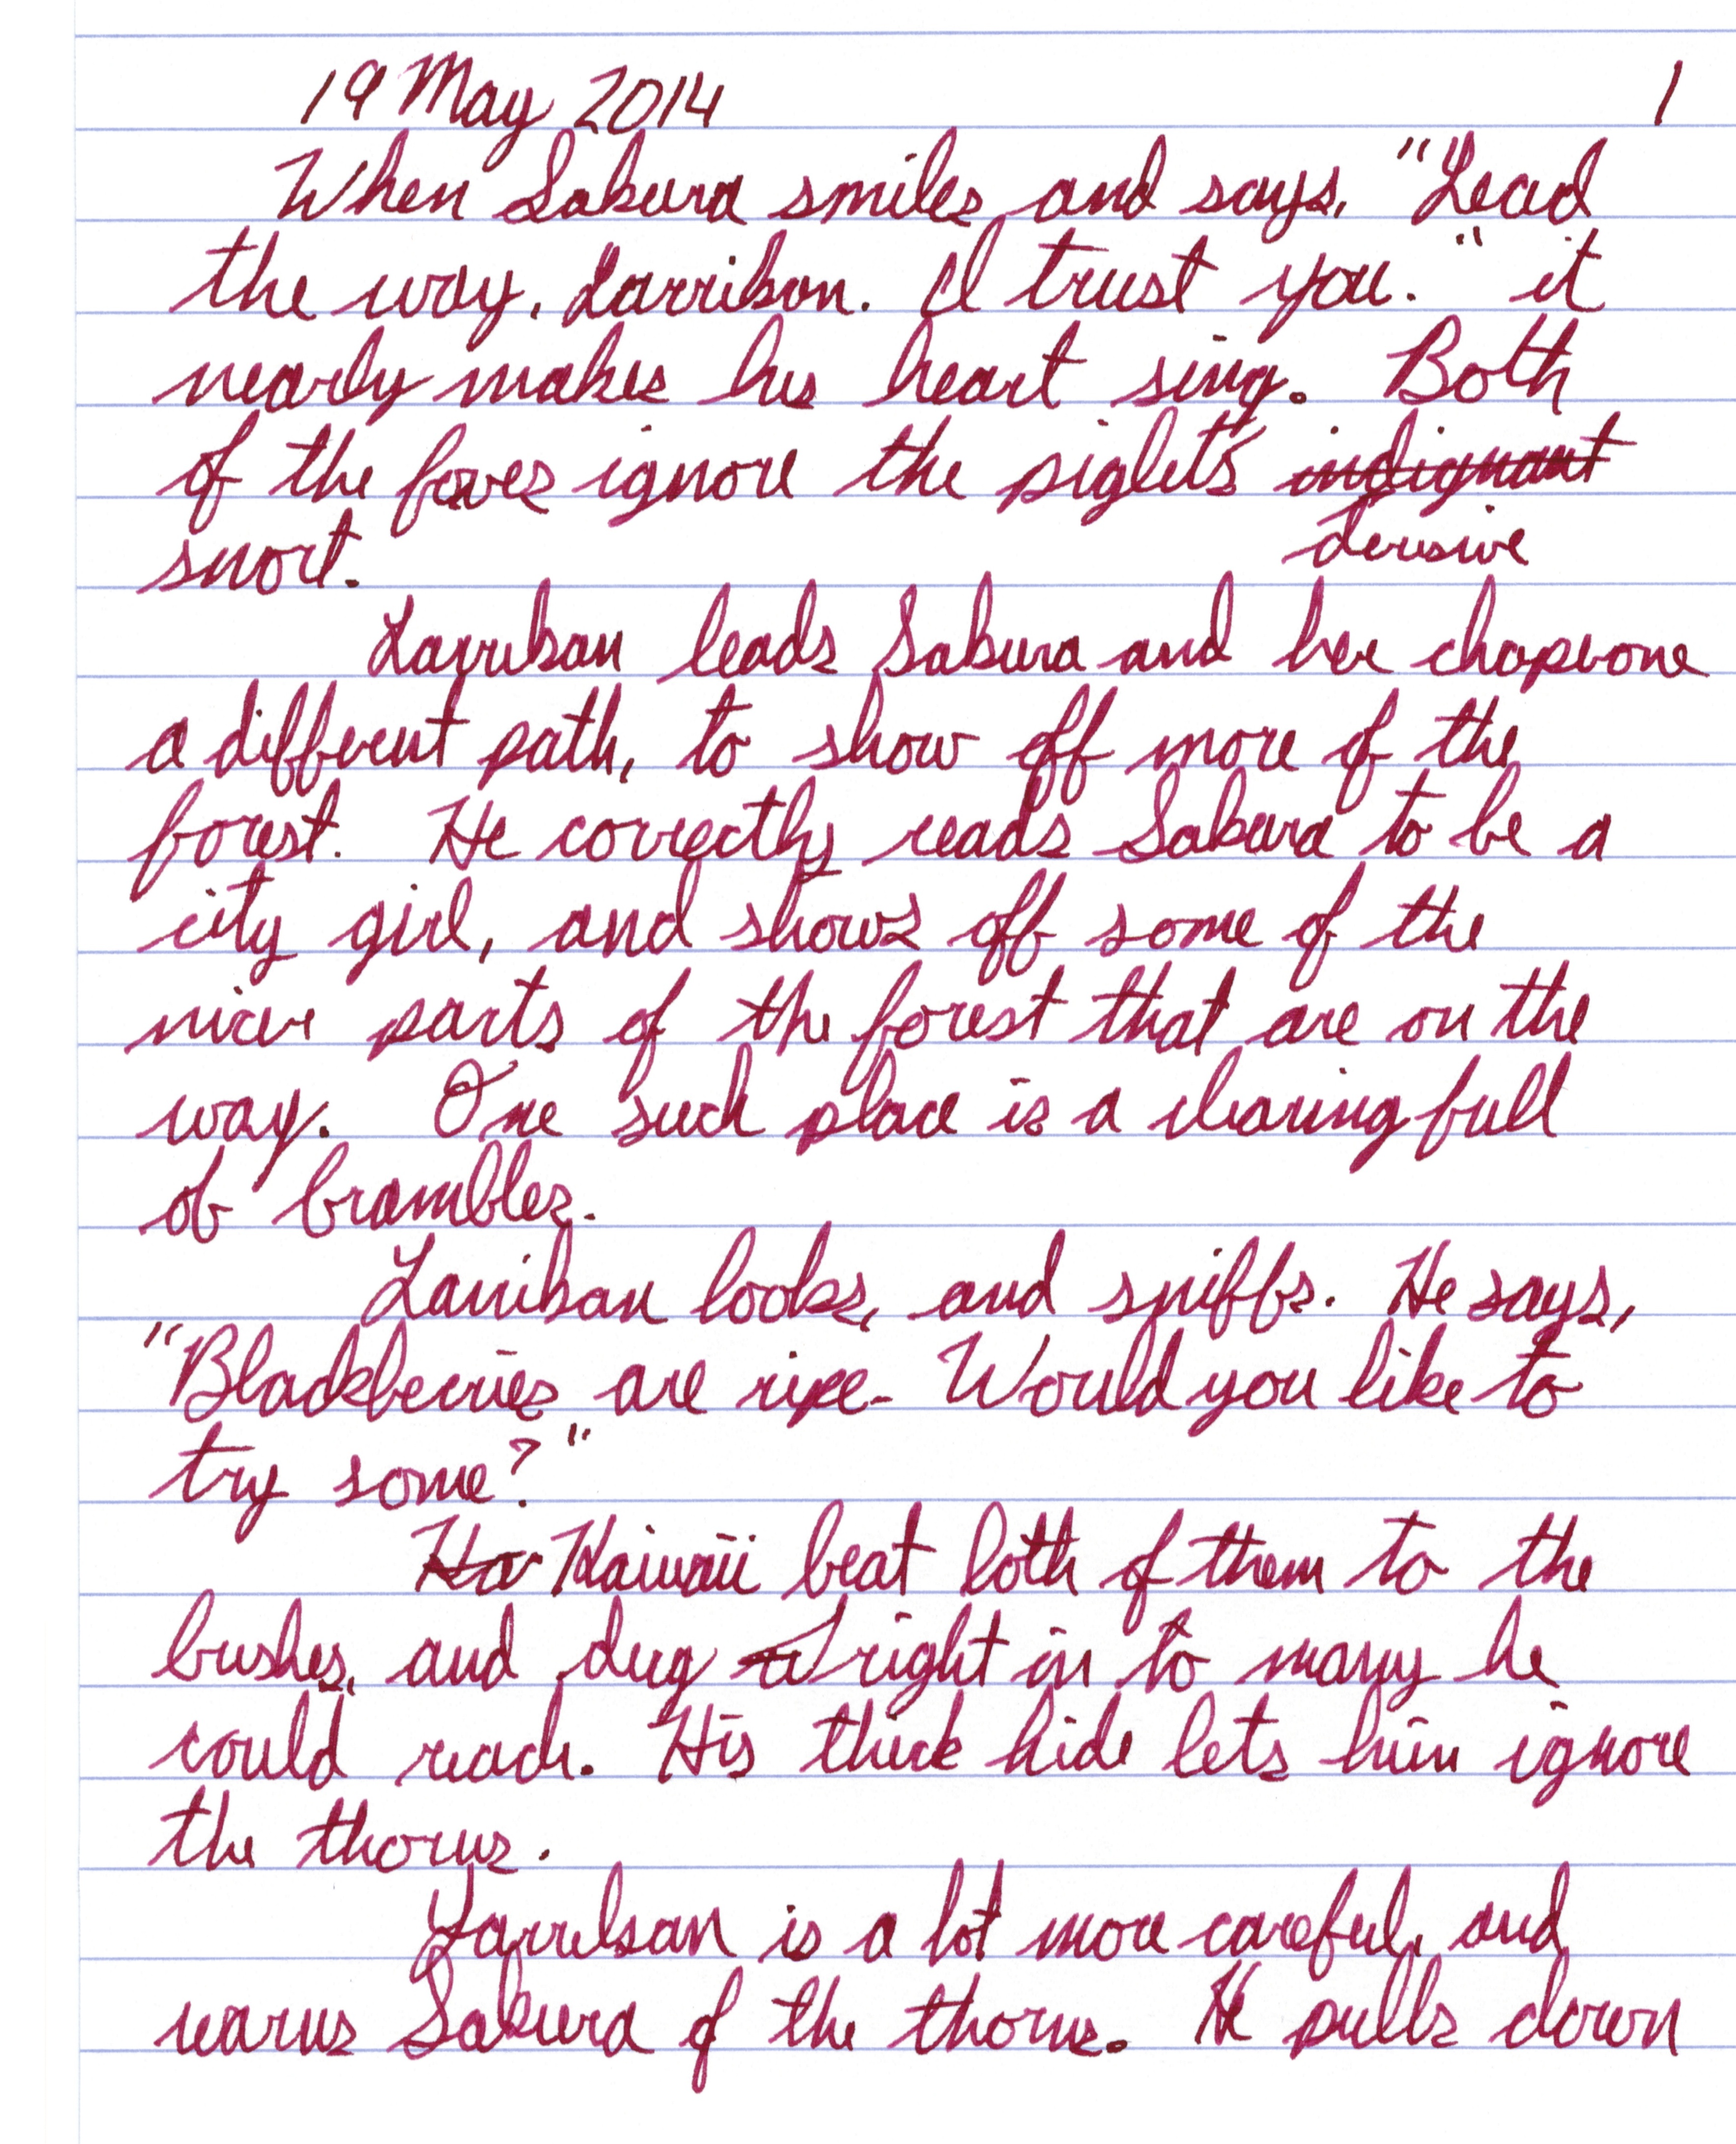 19 May 2014 1
When Sakura smiles, and says, "Lead
the way, Larrikan. I trust you." it
nearly makes his heart sing. Both
of the foxes ignore the piglet's indignant
derisive
snort.
Larrikan leads Sakura and her chaperone
a different path, to show off more of the
forest. He correctly reads Sakura to be a
city girl, and shows off some of the
nicer parts of the forest that are on the
way. One such place is a clearing full
of brambles.
Larrikan looks, and sniffs. He says,
"Blackberries are ripe. Would you like to
try some?"
Ha Kawaii beat both of them to the
bushes, and dug right in to many he
could reach. His thick hide lets him ignore
the thorns.
Larrikan is a lot more careful, and
warns Sakura of the thorns. He pulls down